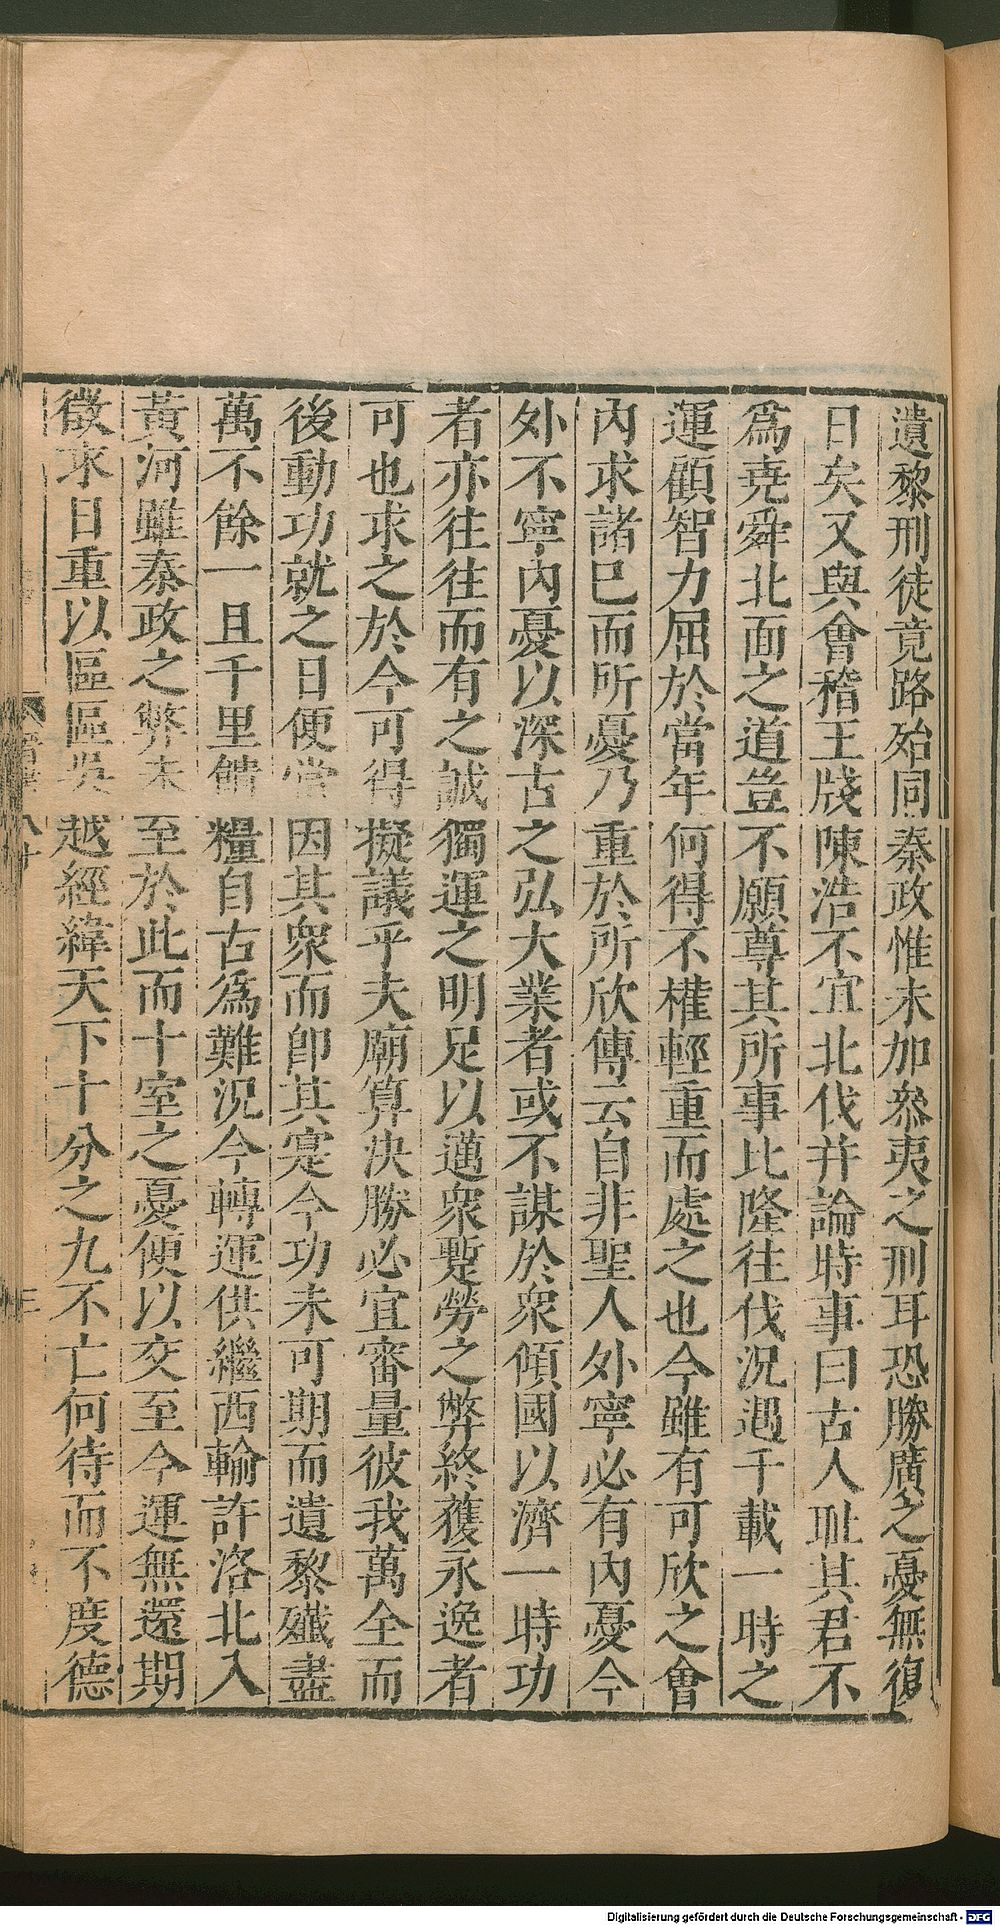 遺黎刑徒竟路殆同秦政惟未加參夷之刑耳恐勝廣之憂無復
日矣又與會稽王牋陳浩不宜北伐并論時事曰古人耻其君不
爲堯舜北面之道豈不願尊其所事比隆往伐況遇千載一時之
運顧智力屈於當年何得不權輕重而處之也今雖有可欣之會
內求諸已而所憂乃重於所欣傳云自非聖人外寧必有內憂今
外不寧內憂以深古之弘大業者或不謀於衆傾國以濟一時功
者亦往往而有之誠獨運之明足以邁衆蹔勞之弊終獲永逸者
可也求之於今可得擬議乎夫廟算決勝必宜審量彼我萬全而
後動功就之日便當因其衆而卽其寔今功未可期而遺黎殲盡
萬不餘一且千里饋糧自古爲難況今轉運供繼西輸許洛北入
黃河雖秦政之弊未至於此而十室之憂便以交至今運無還期
徵求日重以區區吳越經緯天下十分之九不亡何待而不度德
八十
三
Digitalisierung gefördert durch die Deutsche Forschungsgemeinschaft - DFG